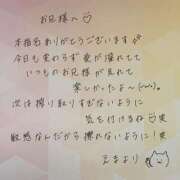 お兄様へ♡
本指名ありがとうございます
今日も変わらず愛が溢れてて
いつものお兄様が見れて
楽しかったよ〜(˶ᵔᵕᵔ˶)。
次は擦り取りすぎないように
気を付けるね♡笑
敏感なんだから擦れないように!笑
より